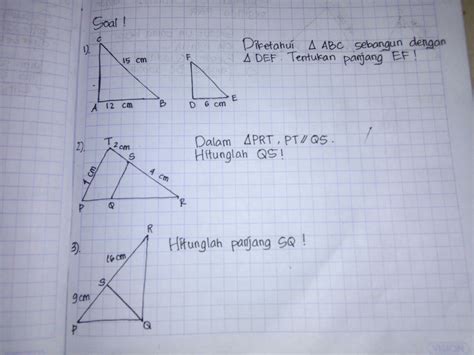 Soal !
1).
C
15 cm
A 12 cm B
F
D 6 cm E
Diketahui Δ ABC sebangun dengan
Δ DEF. Tentukan panjang EF !
2).
T 2 cm
S
4 cm
P Q R
Dalam ΔPRT, PT // QS.
Hitunglah QS !
3).
R
16 cm
S
9 cm
P Q
Hitunglah panjang SQ !
VISION